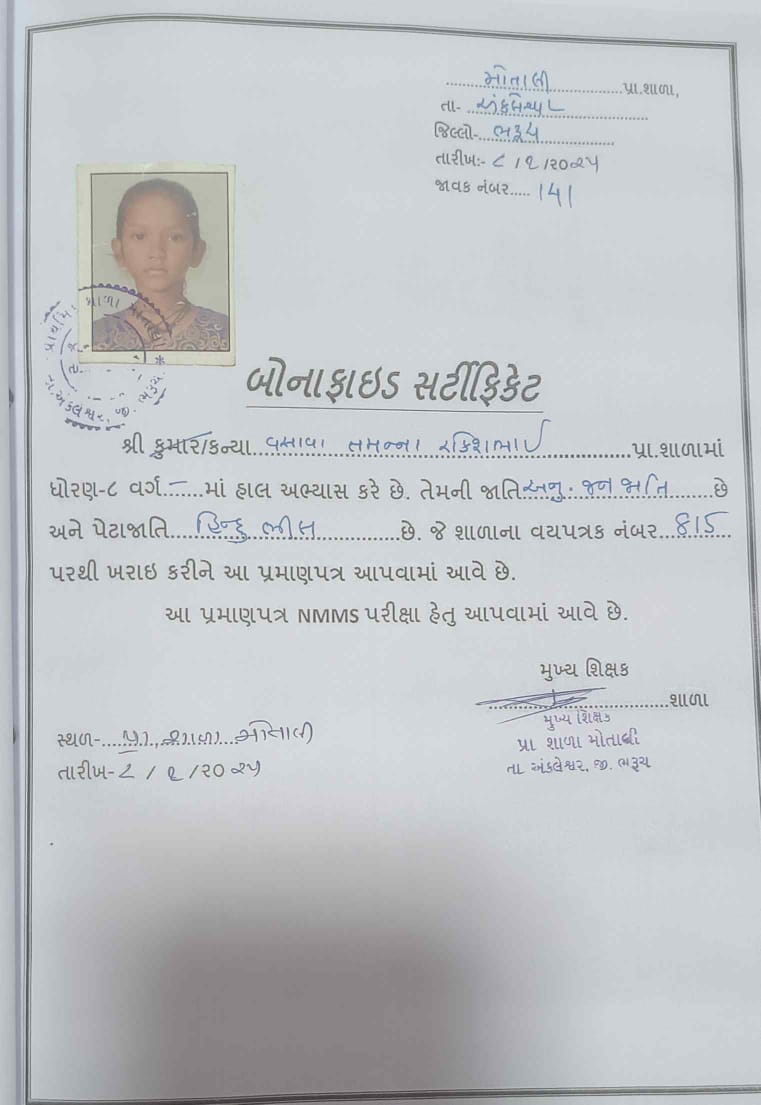 મોતાલી પ્રા.શાળા,
તા- અંકલેશ્વર
જિલ્લો- ભરૂચ
તારીખ:- ૮ / ૧ / ૨૦૨૫
જાવક નંબર..... 141
બોનાફાઇડ સર્ટીફિકેટ
શ્રી કુમાર/કન્યા વસાવા તમન્ના રાકેશભાઈ પ્રા.શાળામાં
ધોરણ-૮ વર્ગ – માં હાલ અભ્યાસ કરે છે. તેમની જાતિ અનુ. જન જાતિ છે
અને પેટાજાતિ હિન્દુ ભીલ છે. જે શાળાના વયપત્રક નંબર 815
પરથી ખરાઇ કરીને આ પ્રમાણપત્ર આપવામાં આવે છે.
આ પ્રમાણપત્ર NMMS પરીક્ષા હેતુ આપવામાં આવે છે.
મુખ્ય શિક્ષક
શાળા
મુખ્ય શિક્ષક
પ્રા શાળા મોતાલી
તા અંકલેશ્વર, જી. ભરૂચ
સ્થળ- પ્રા. શાળા મોતાલી
તારીખ- ૮ / ૧ / ૨૦૨૫